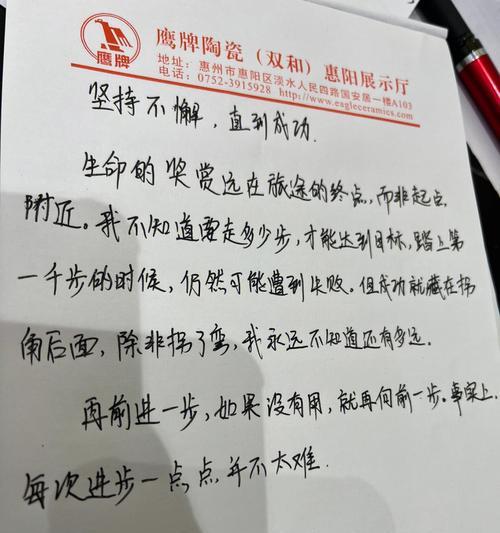 鹰牌陶瓷（双和）惠阳展示厅
鹰牌
地址：惠州市惠阳区淡水人民四路国安居一楼A103
电话：0752-3915928 http://www.eagleceramics.com/
坚持不懈，直到成功.
生命的奖赏远在旅途的终点，而非起点
附近。我不知道要走多少步，才能达到目标，踏上第
一千步的时候，仍然可能遭到失败。但成功就藏在拐
角后面，除非拐了弯，我永远不知道还有多远.
再前进一步，如果没有用，就再向前一步。事实上，
每次进步一点点，并不太难.